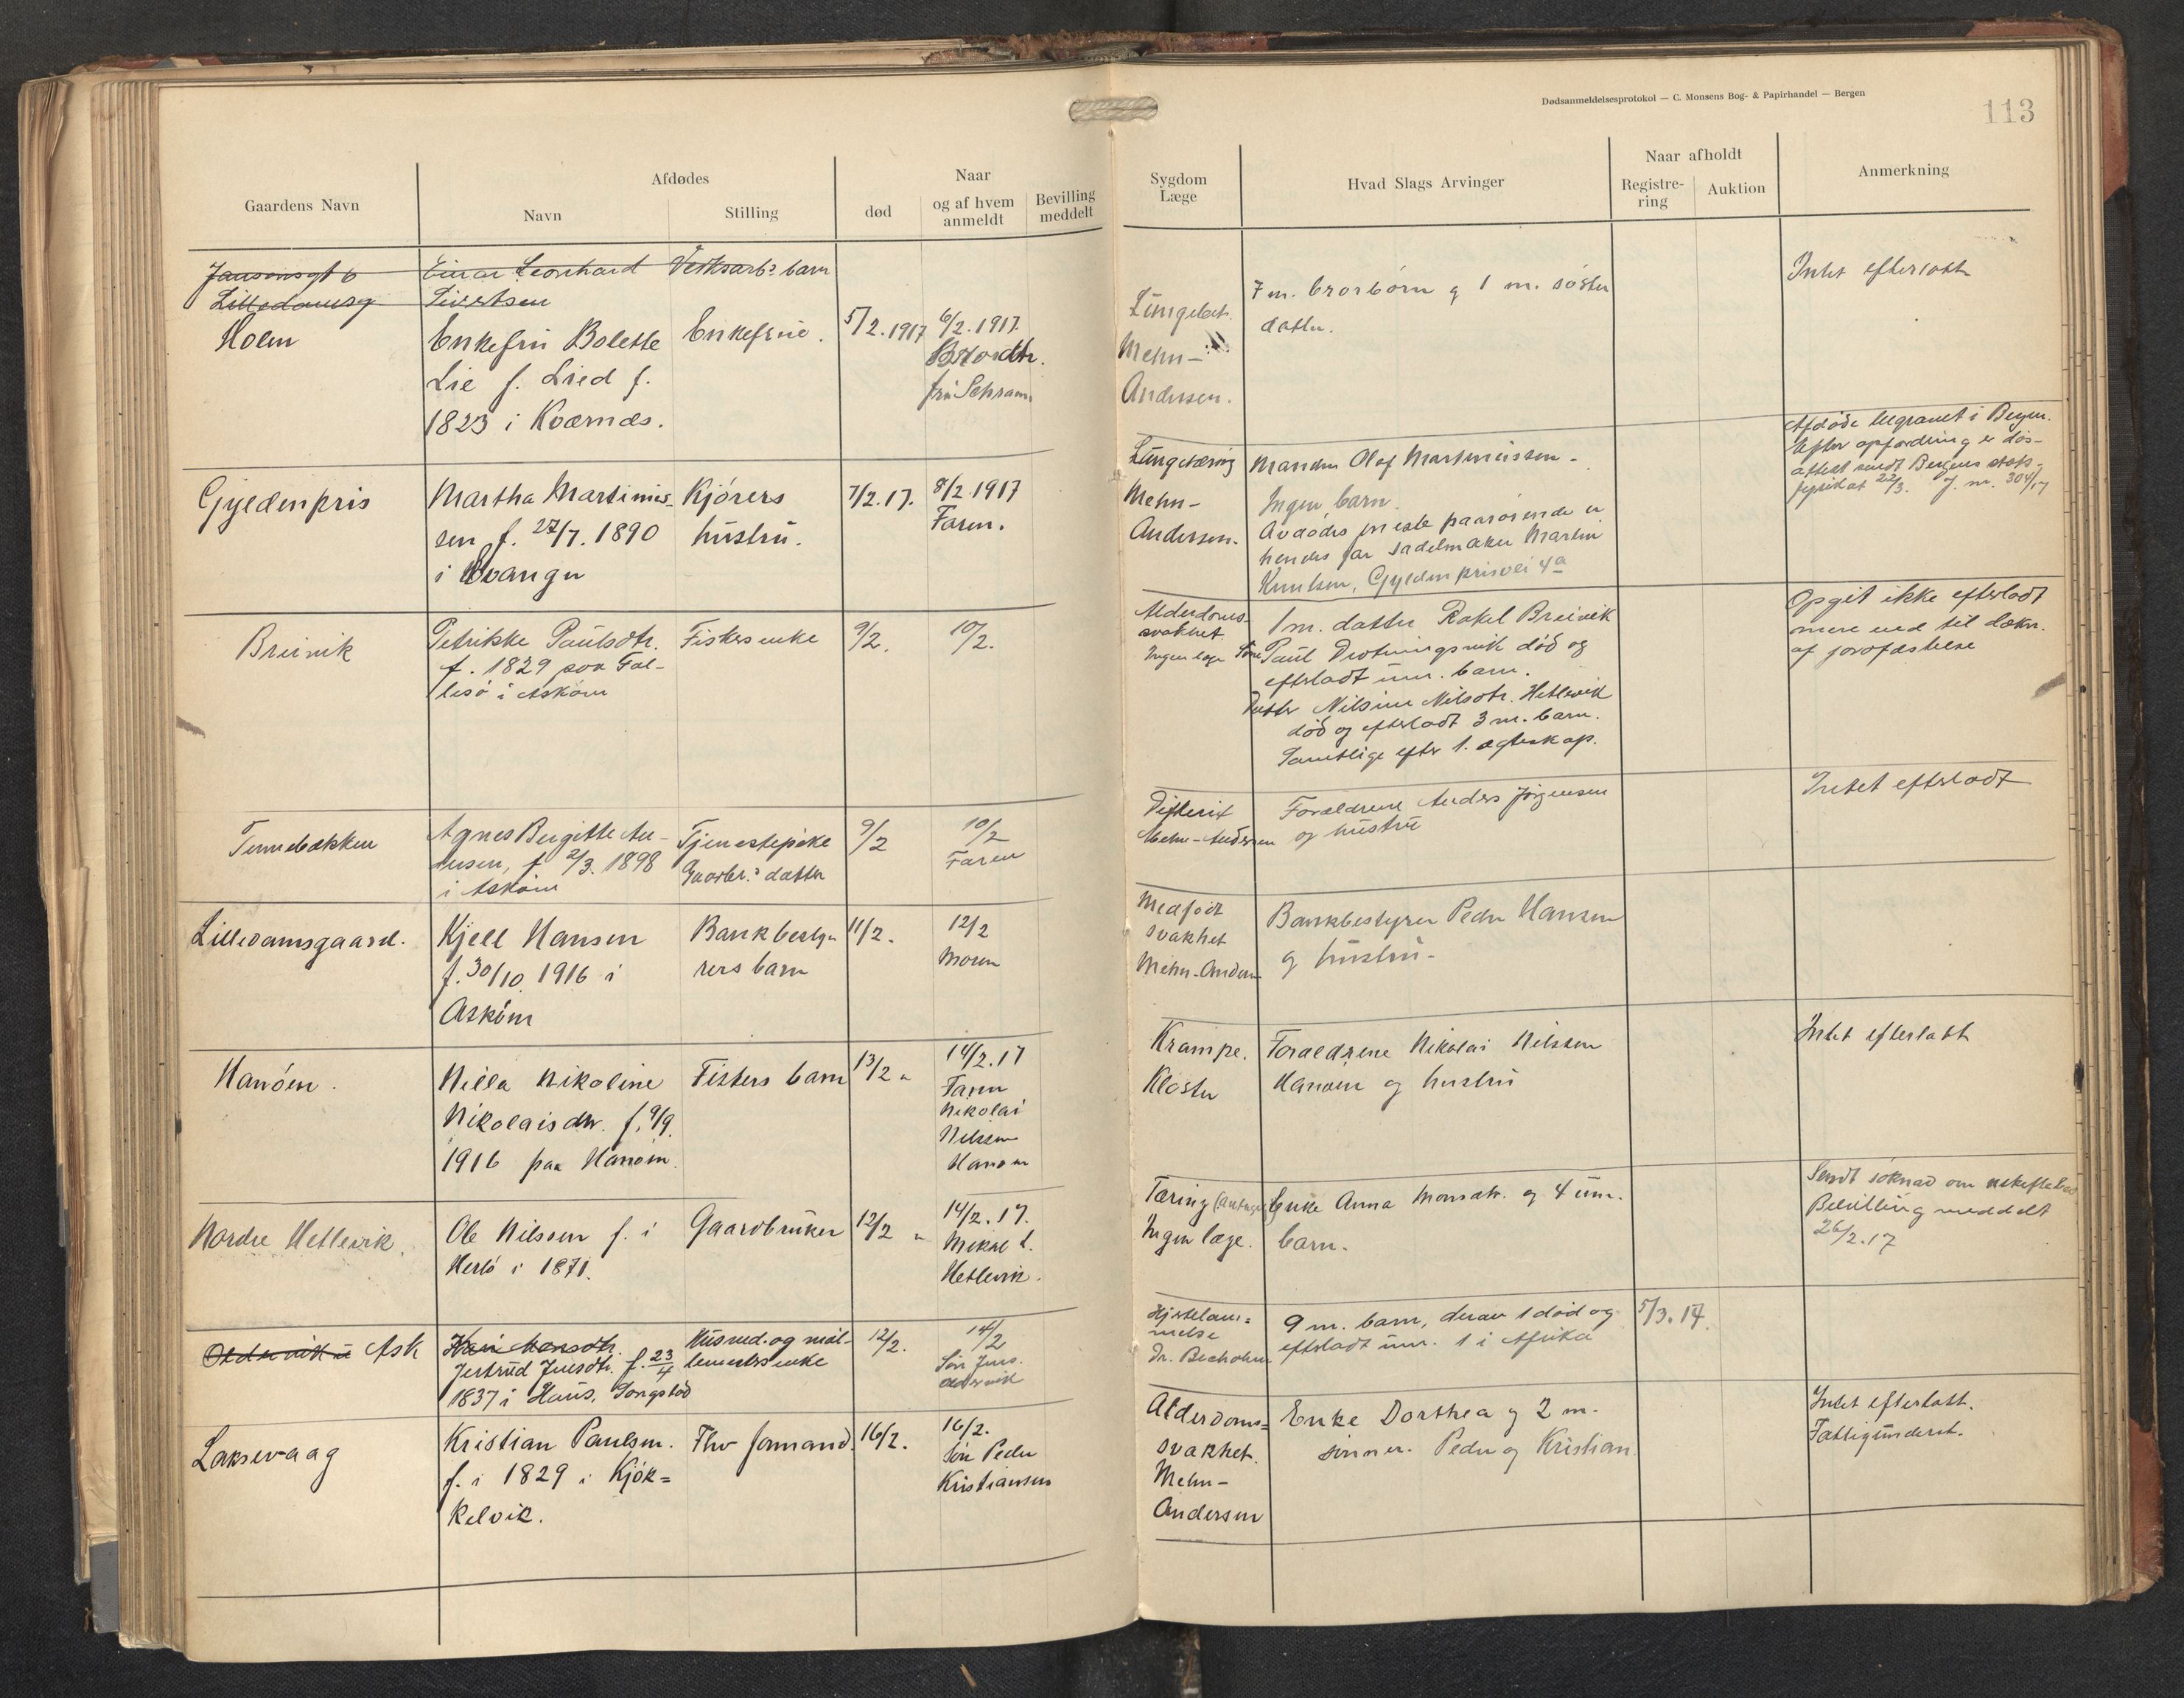 Dødsanmeldelsesprotokol — C. Monsens Bog- & Papirhandel — Bergen
113
Gaardens Navn
Afdødes
Navn
Stilling
Naar
død
og af hvem anmeldt
Bevilling meddelt
Sygdom
Læge
Hvad Slags Arvinger
Naar afholdt
Registre-
ring
Auktion
Anmerkning
Jansonsgt 6
Lilledamsg
Einar Leonhard
Sivertsen
Verksarbs barn
Holm
Enkefru Bolette
Lie f. Lied f.
1823 i Kværnæs.
Enkefrue.
5/2.1917
6/2.1917.
fru Schram
Mehn-
Andersen.
7 m. brorbørn g 1 m. søster
datter.
Intet efterlatt
Gyldenpris
Martha Martinius-
sen f. 27/7. 1890
i
Kjørers
hustru.
7/2.17.
8/2.1917
Faren.
Lungetæring
Mehn-
Andersen.
Manden Olaf Martiniussen -
Ingen barn.
Avdødes næste paarørende er
hendes far sadelmaker Martin
Knutsen, Gyldenprisvei 4a
Afdøde begravet i Bergen.
Efter opfordring er døs-
attest sendt Bergens stats-
fysikat 22/3. J. nr. 304/17
Breivik
Petrikke Paulsdtr.
f. 1829 paa Fol-
lesø i Askøen
Fiskers enke
9/2.
10/2.
Alderdoms-
svakhet.
Ingen læge
1 m. datter Rakel Breivik
Søn Paul Drotningsvik død og
efterladt um. barn.
Datter Nilsine Nilsdtr. Hetlevik
død og efterladt 3 m. barn.
Samtlige efter 1. ægteskap.
Opgit ikke efterladt
mere end til dækn.
af jordfæstelse
Tennebækken
Agnes Birgitte An-
dersen, f 2/3. 1898
i Askøen
Tjenestepike
Gaarbr.s datter
9/2
10/2
Faren
Difterit
Mehn-Andersen
Forældrene Anders Jørgensen
og hustru
Intet efterladt
Lilledamsgaard.
Kjell Hansen
f. 30/10 1916 i
Askøen
Bankbesty-
rers barn
11/2.
12/2
Moren
Medfødt
svakhet
Mehn-Andersen
Bankbestyrer Peder Hansen
g hustru-
Hanøen.
Nilla Nikoline
Nikolaisdtr. f. 9/9.
1916 paa Hanøen.
Fiskers barn
13/2 "
14/2.17
Faren
Nikolai
Nilssen
Hanøen
Krampe.
Kloster
Forældrene Nikolai Nilssen
Hanøen og hustru
Intet efterlatt
Nordre Hetlevik.
Ole Nilssen f. i
Herlø i 1871.
Gaardbruker
12/2 "
14/2.17.
Mikal L.
Hetlevik.
Tæring
Ingen læge.
Enke Anna Monsdtr. og 4 um.
barn.
Sendt søknad om
Bevilling meddelt
26/2.17
Ask
Kari Monsdtr.
Jertrud Juelsdtr. f. 23/4
1837 i Haus,
Husmd. og
enke
12/2.
14/2
Søn
Hjertelam-
melse
9 m. barn, derav 1 død og
efterladt um. 1 i Afrika
5/3.17.
Laksevaag
Kristian Paulsen.
f. i 1829 i Kjøk=
kelvik.
Fhv formand.
16/2.
16/2.
Søn Peder
Kristiansen
Alderdoms=
svakhet.
Mehn-
Andersen
Enke Dorthea g 2 m.
sønner. Peder og Kristian.
Intet efterlatt.
Fattigunderst.